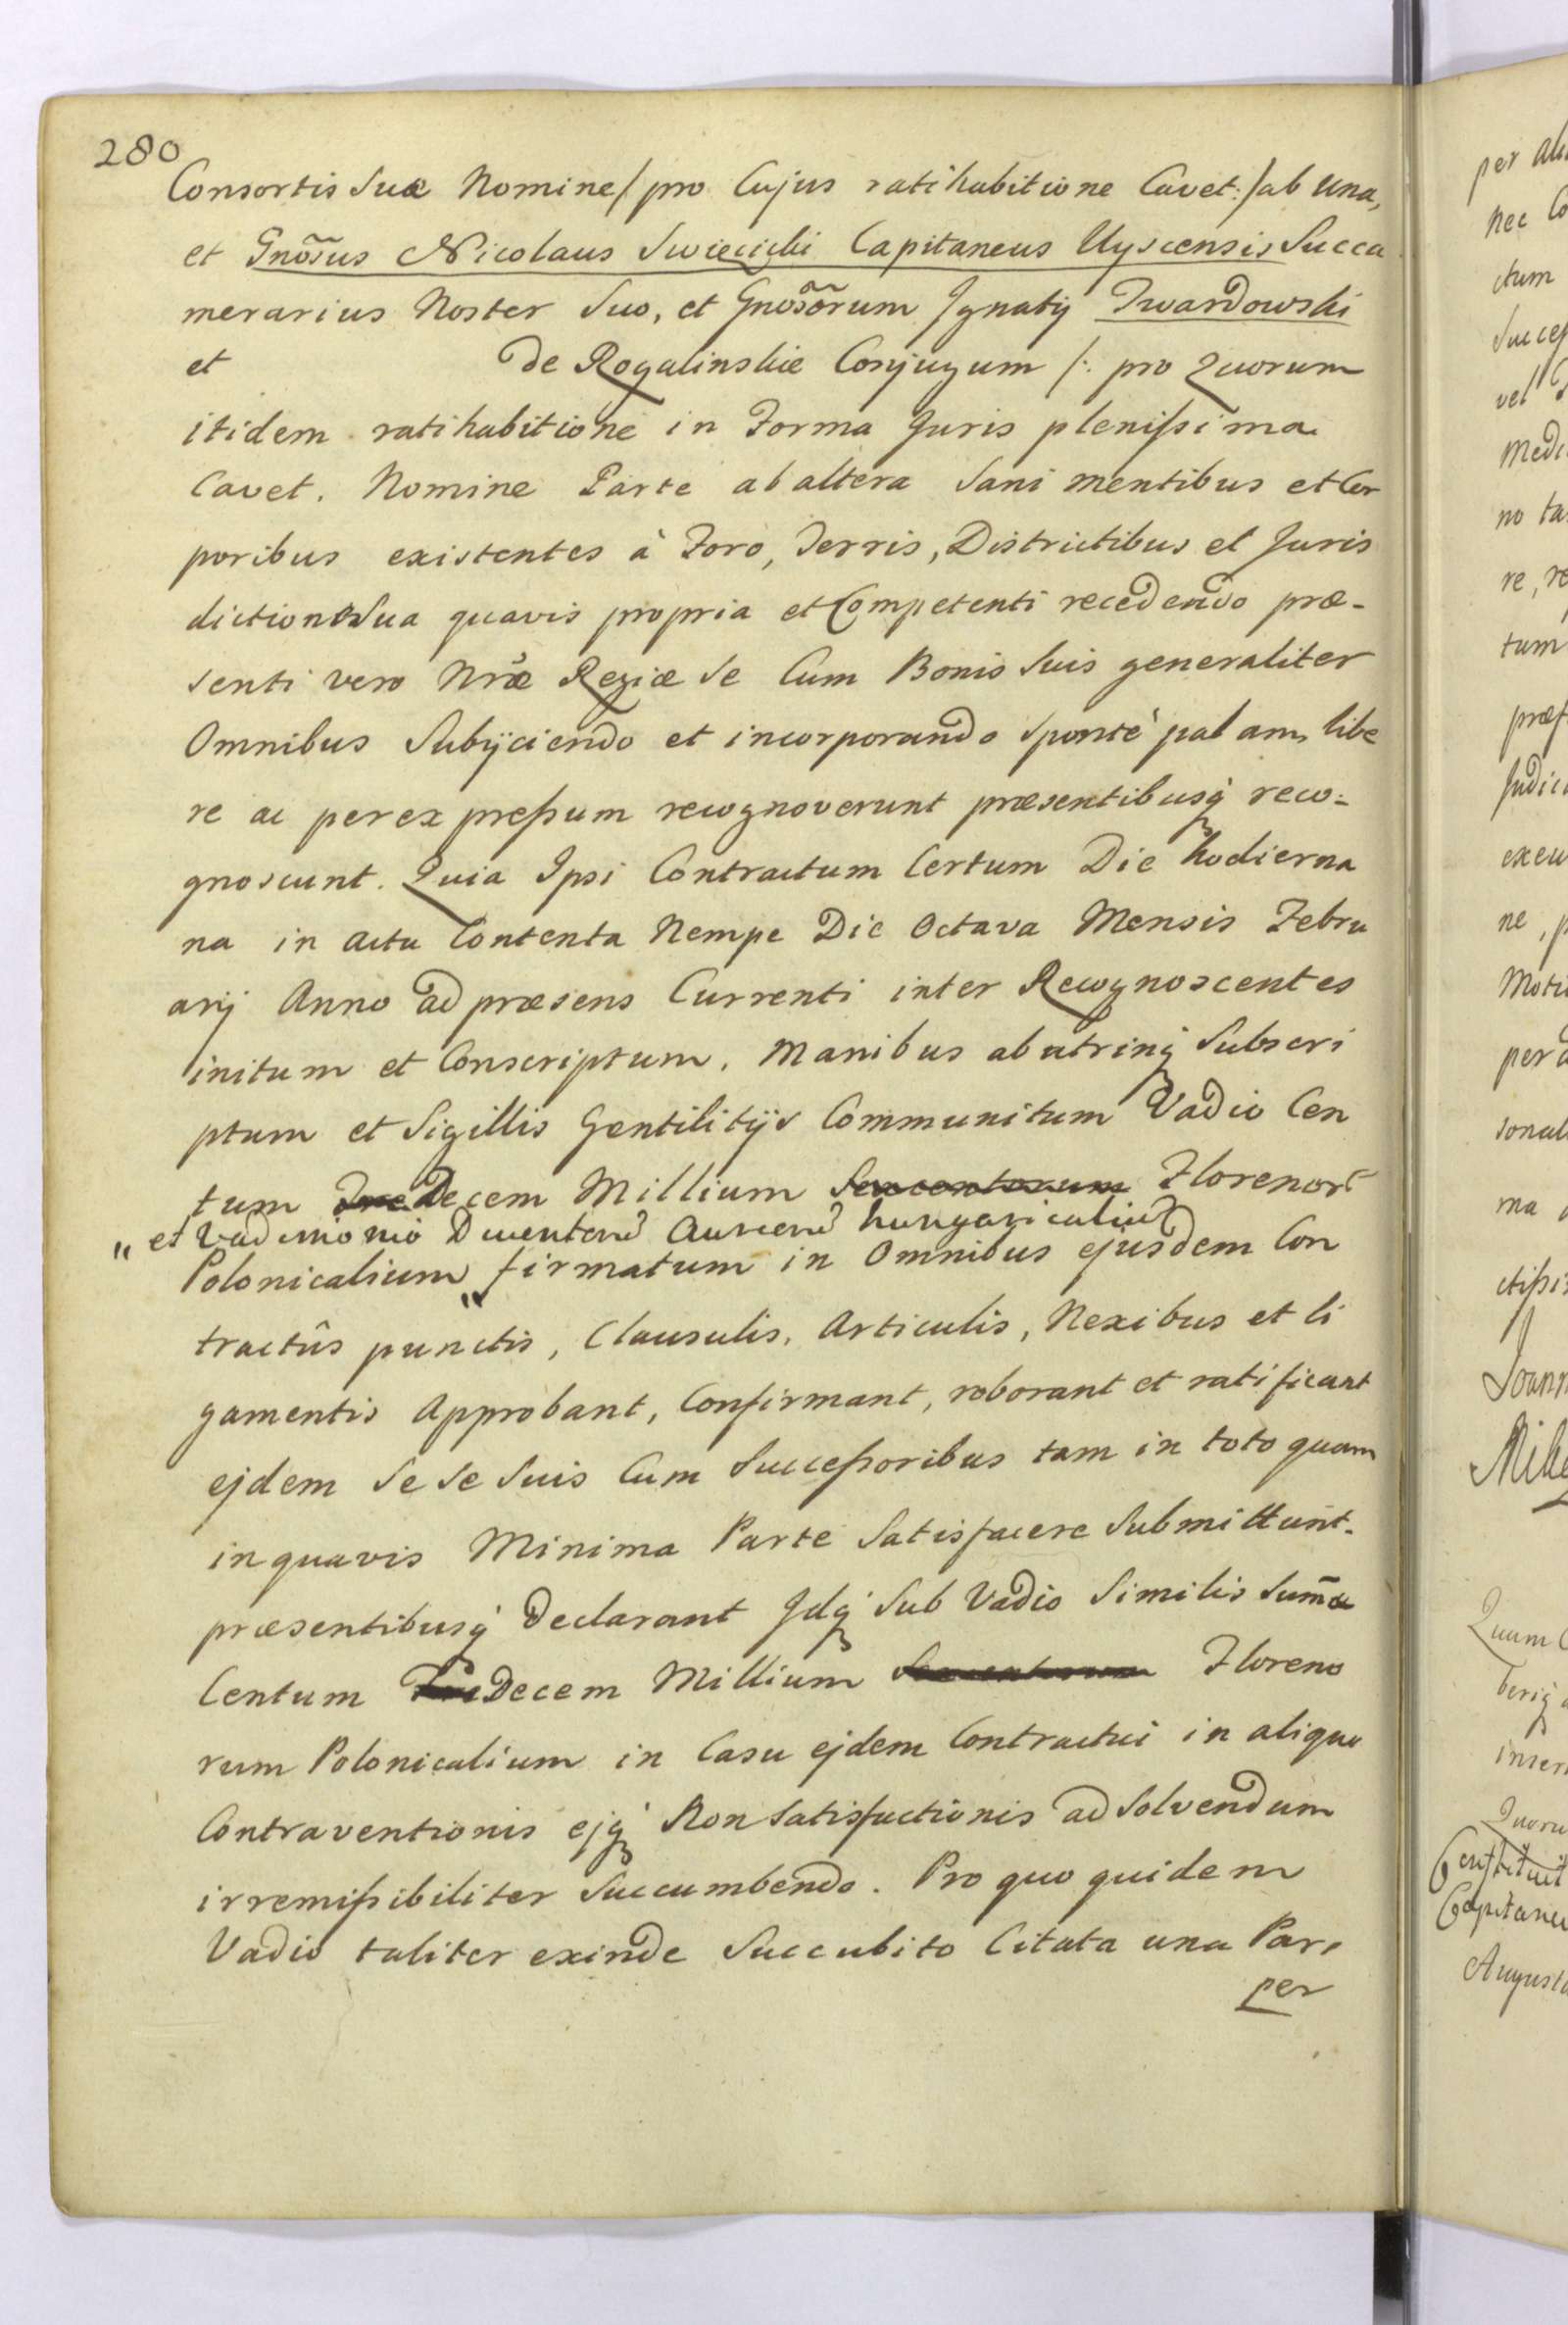 280
Consortis Suæ Nomine /: pro Cujus ratihabitione Cavet :/ ab Una,
et Gnõsus Nicolaus Swiecicki Capitaneus Uyscensis Succa
merarius Noster Suo, et Gnõsõrum Ignatij Twardowski
et de Rogalinskie Conjugum /: pro Quorum
itidem ratihabitione in Forma Juris plenissima
Cavet. Nomine Parte ab altera Sani mentibus et Cor
poribus existentes à Foro, Terris, Districtibus et Juris
dictione Sua quavis propria et Competenti recedendo præ-
senti vero Nræ Regiæ Se Cum Bonis Suis generaliter
Omnibus Subijciendo et incorporando sponte palam, libe
re ac per expressum recognoverunt præsentibusq reco=
gnoscunt. Quia Ipsi Contractum Certum Die hodierna
na in actu Contenta Nempe Die Octava Mensis Febru
arij Anno ad præsens Currenti inter Recognoscentes
initum et Conscriptum, Manibus ab utrinq Subscri
ptum et Sigillis Gentilitijs Communitum Vadio Cen
tum Tre Decem Millium Sexcentorum Florenor
" et Vadimonio Ducentorũ Aureorũ hungaricaliũ
Polonicalium " firmatum in Omnibus ejusdem Con
tractûs punctis, Clausulis, Articulis, Nexibus et li
gamentis Approbant, Confirmant, roborant et ratificant
ejdem Se se Suis Cum Successoribus tam in toto quam
in quavis Minima Parte Satisfacere Submittunt.
præsentibusq Declarant Idq Sub Vadio Similis Sum̃æ
Centum Tre Decem Millium Sexcentorum Floreno
rum Polonicalium in Casu ejdem Contractui in aliquo
Contraventionis ejq Non Satisfactionis ad Solvendum
irremissibiliter Succumbendo. Pro quo quidem
Vadio taliter exinde Succubito Citata una Pars
per
per ali
nec Co
ctum
Success
vel
Medi
no ta
re, re
tum
præs
Judici
exeu
ne, p
Moti
per
sonali
ma
ctissi
Joann
Miko
Quum
beriq
inser
Quoru
Constituit
Capitaneu
Augusta